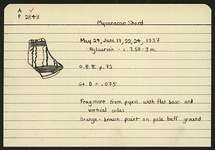 A ✓
P 2843
Mycenaean Sherd
May 24, June 17, 22, 24, 1937
7.58 - 3 m.
O.B.E p. 73
= .075
Fragment from pyxis with flat base and
vertical sides
Orange-brown paint on pale buff ground